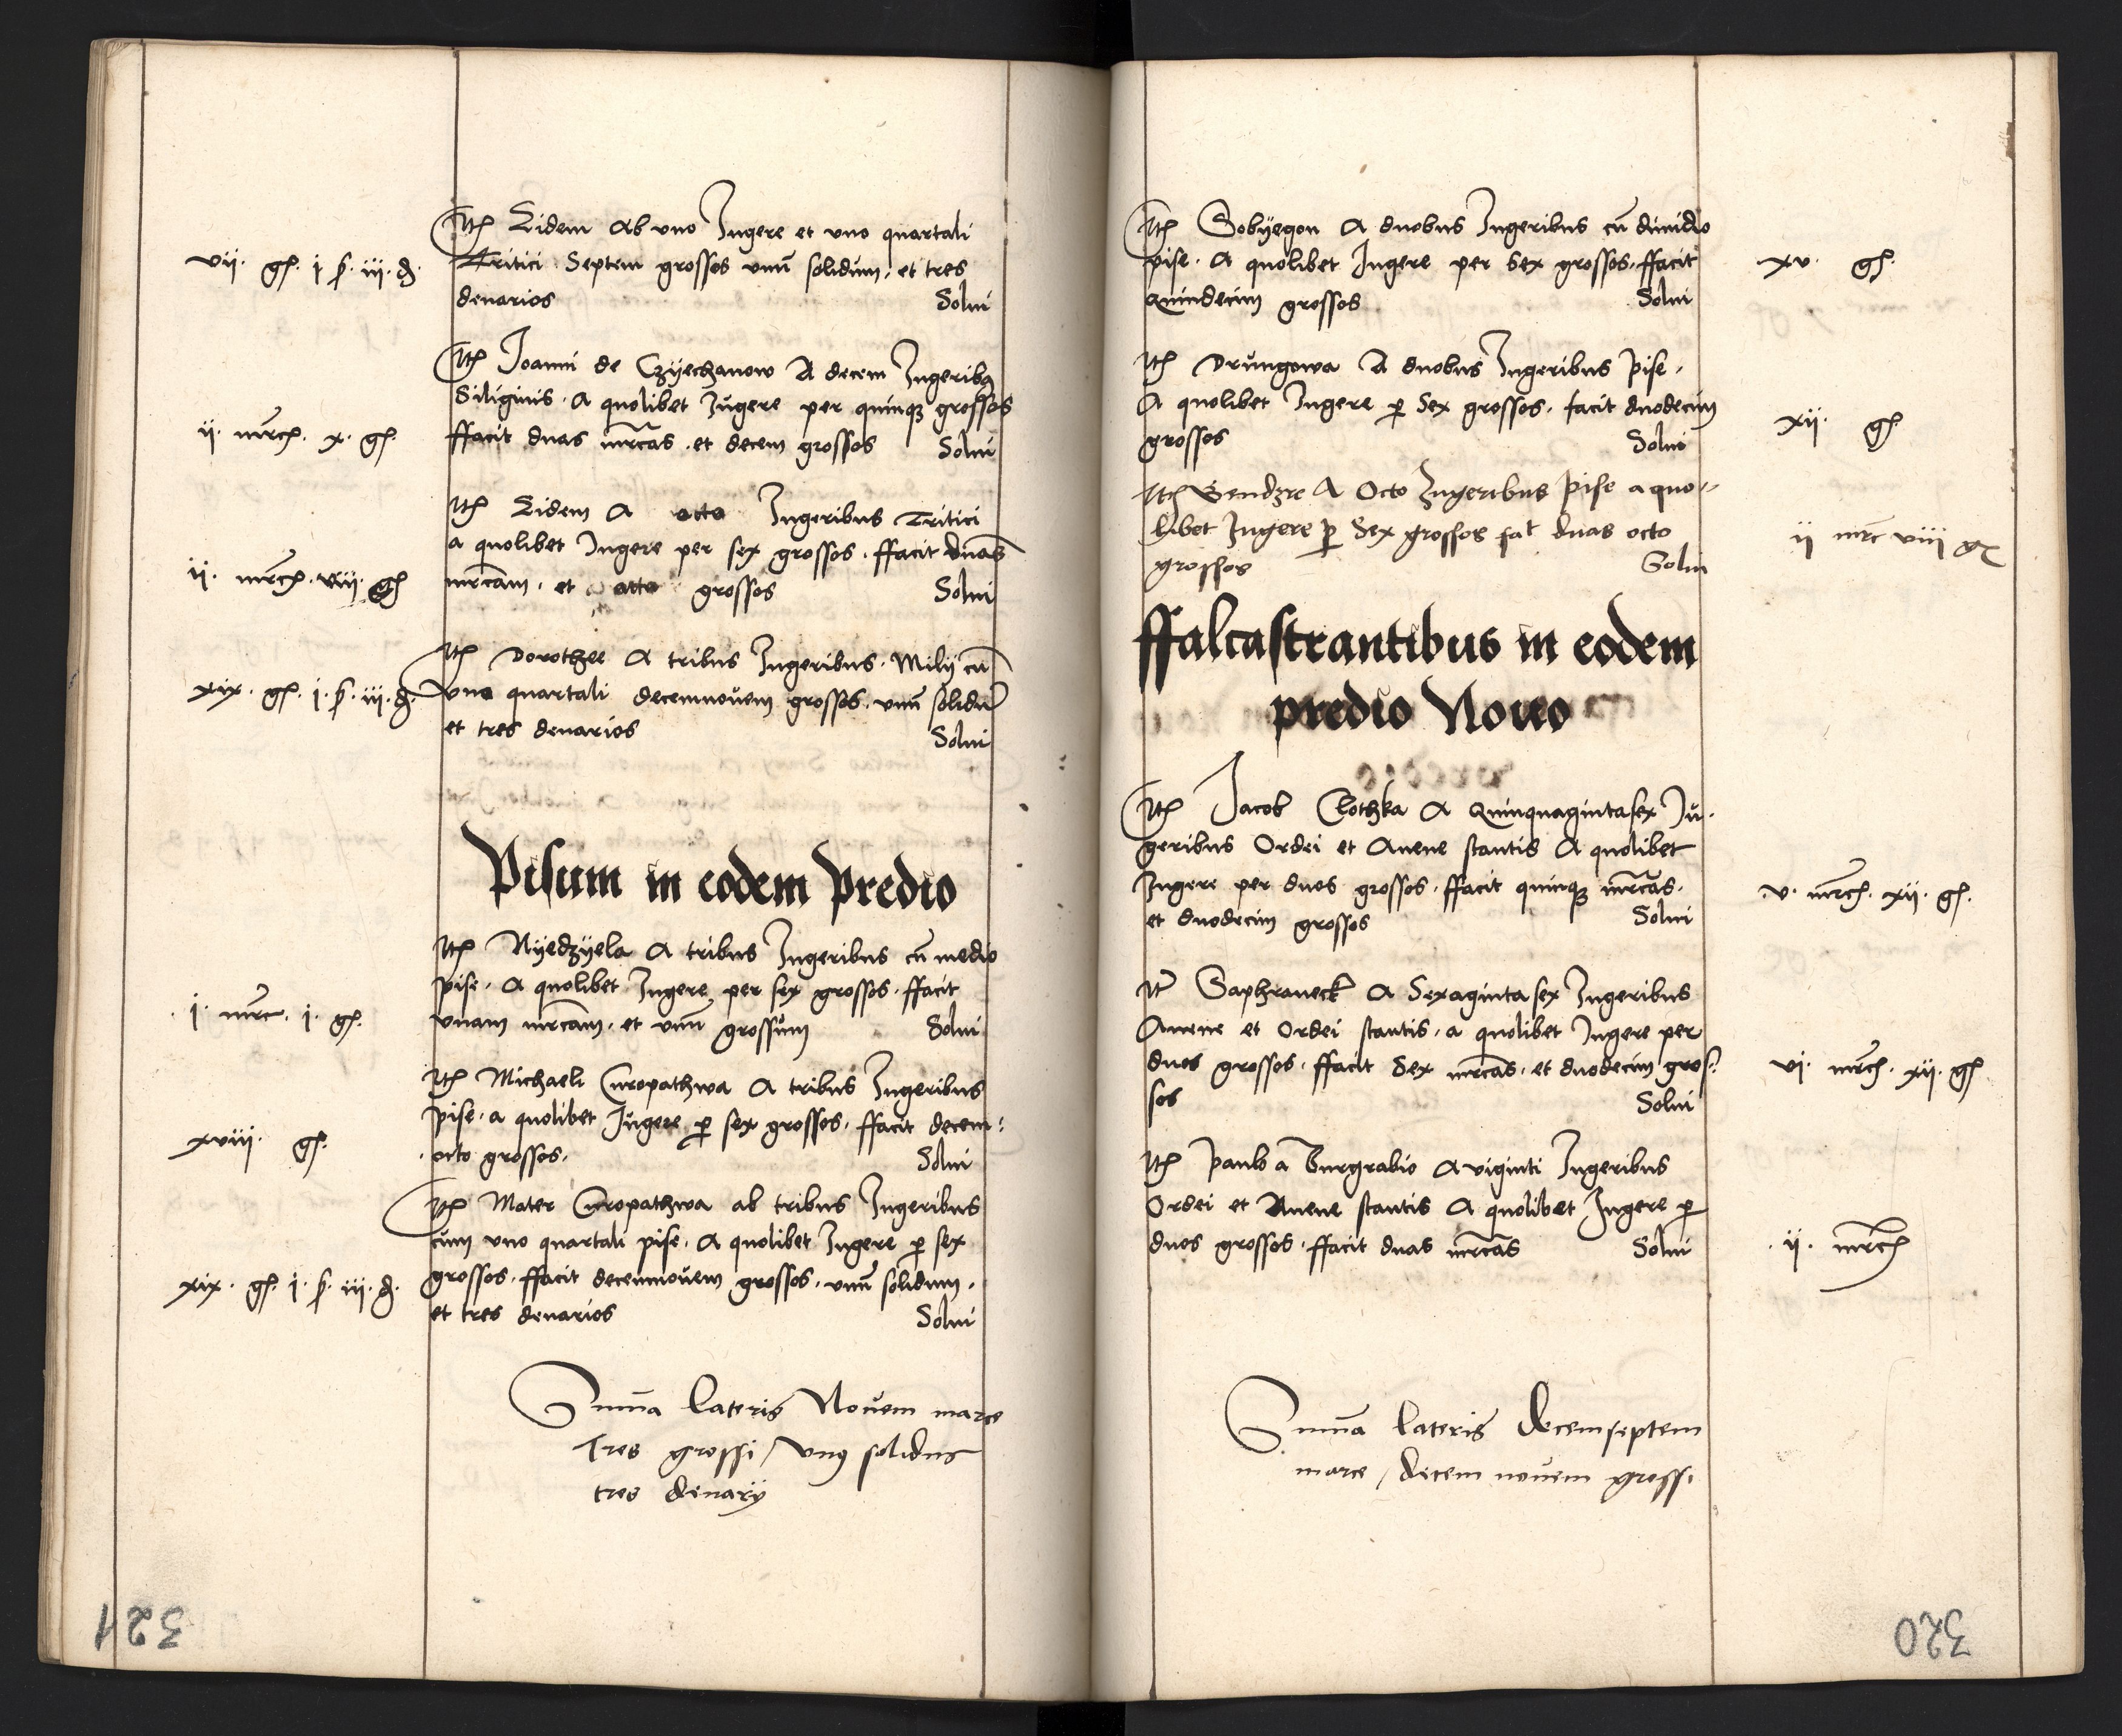 Itm Eidem Ab uno Jugere et uno quartali
Tritici Septem grossos unū solidum. et tres
denarios Solui
vii. gſ. i ß. iii. ₰.
Itm Joanni de Czÿechanow A decem Jugerib9
Siliginis. A quolibet Jugere per quinqꝫ grossos
ffacit duas mrcas. et decem grossos Solui
ii. mrcſ. x. gſ.
Itm Eidem A octo Jugeribus Tritici
a quolibet Jugere per sex grossos. ffacit duas
mrcam. et octo grossos Solui
ii. mrcſ. viii. gſ
Itm Dorothee A tribus Jugeribus. Milij cū
uno quartali decemnovem grossos. unū solidū
et tres denarios Solui
xix. gſ. i. ß. iii. ₰.
Pisum in eodem predio
Itm Nÿedzÿela A tribus Jugeribus cū medio
pise. A quolibet Jugere per sex grossos. ffacit
unam mrcam. et unū grossum Solui
i. mrc. i. gſ.
Itm Michaeli Curopathwa A tribus Jugeribus
pise. a quolibet Jugere ꝑ sex grossos. ffacit decem:
octo grossos. Solui
xviii. gſ.
Itm Mater Curopathwa ab tribus Jugeribus
cum uno quartali pise. A quolibet Jugere ꝑ sex
grossos. ffacit decemnovem grossos. unū solidum.
et tres denarios Solui
xix. gſ. i. ß. iii. ₰.
Sum̄a lateris Novem marce
Tres grossi / Un9 solidus
tres denarÿ
321
Itm Sobÿegon A duobus Jugeribus cū dimidio
pise. A quolibet Jugere per Sex grossos. ffacit
Quindecim grossos Solui
xv. gſ.
Itm Drungowa A duobus Jugeribus Pise.
A quolibet Jugere ꝑ Sex grossos. facit duodecim
grossos Solui
xii. gſ
Itm Gendzre A Octo Jugeribus Pise a quo-
libet Jugere ꝑ Sex grossos fat duas octo
grossos Solui
ii mrc viii gſ
ffalcastrantibus in eodem
predio Novo
Itm Jacob Clothka A Quinquagintasex Ju.
geribus Ordei et Avene stantis A quolibet
Jugere per duos grossos. ffacit quinqꝫ mrcas.
et duodecim grossos Solui
.v. mrcſ. xii. gſ.
Itm Saphraneck A Sexaginta sex Jugeribus
Avene et Ordei stantis. a quolibet Jugere per
duos grossos. ffacit Sex mrcas. et duodecim gros:
sos Solui
vi. mrcſ. xii. gſ
Itm Paulo a Burgrabio A viginti Jugeribus
Ordei et Avene stantis A quolibet Jugere ꝑ
duos grossos. ffacit duas mrcas Solui
.ii. mrcſ
Sum̄a lateris Decemseptem
marce / decem novem grossi
320